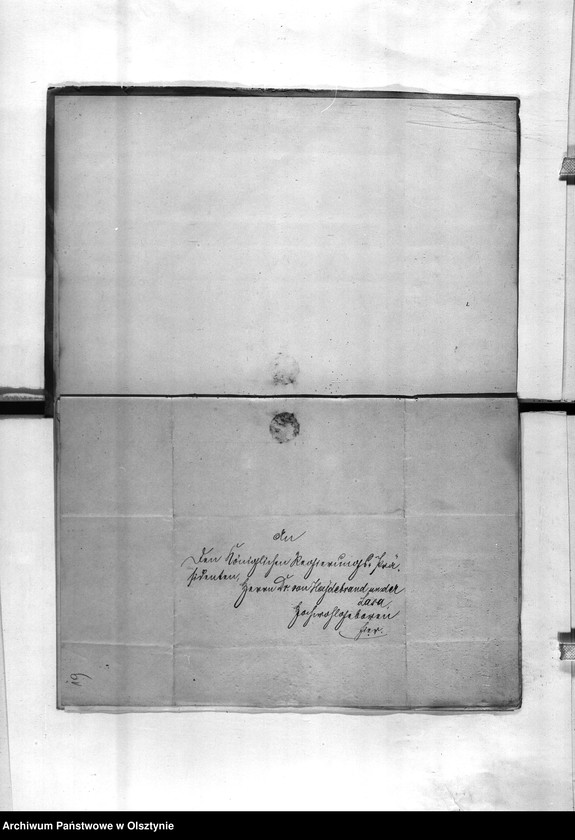 An
Den Königlichen Regierungs-Prä-
sidenten,
Herrn Dr. von Heydebrand und der
Lasa
Hochwohlgeboren
hier.
19
Archiwum Państwowe w Olsztynie